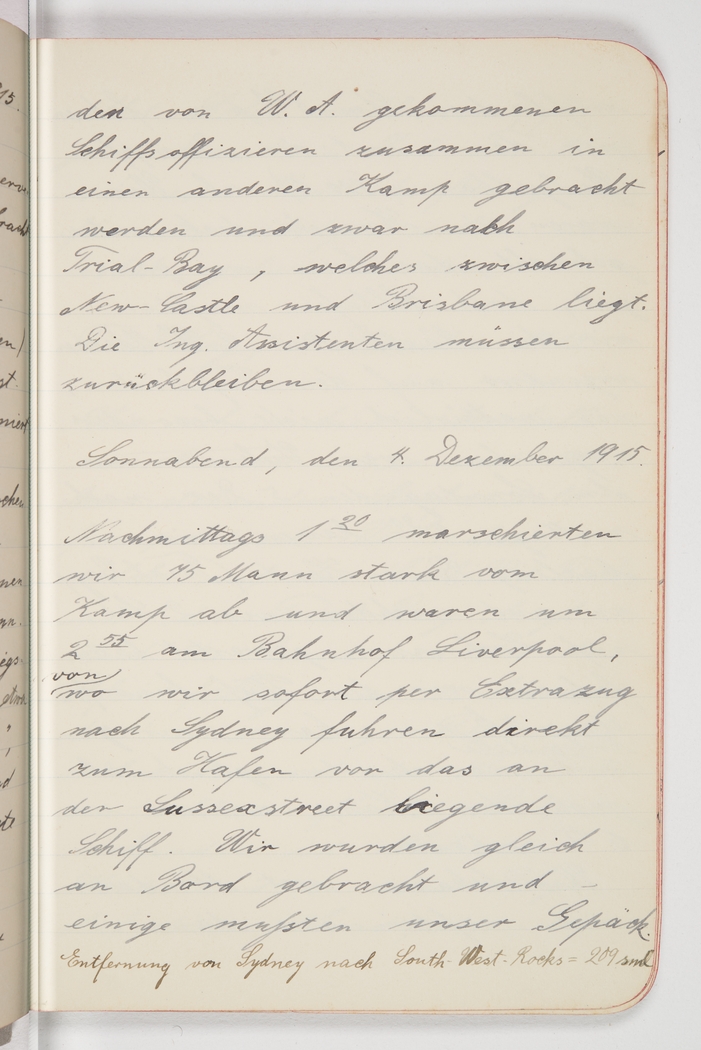 den von W. A. gekommenen
Schiffsoffizieren zusammen in
einen anderen Kamp gebracht
werden und zwar nach
Trial-Bay, welches zwischen
New-Castle und Brisbane liegt.
Die Ing. Assistenten müssen
zurückbleiben.
Sonnabend, den 4. Dezember 1915.
Nachmittags 1 20 marschierten
wir 75 Mann stark vom
Kamp ab und waren um
2 55 am Bahnhof Liverpool,
von
wo wir sofort per Extrazug
nach Sydney fuhren direkt
zum Hafen vor das an
der Sussexstreet liegende
Schiff. Wir wurden gleich
an Bord gebracht und –
einige mußten unser Gepäck
Entfernung von Sydney nach South-West-Rocks = 209 sml